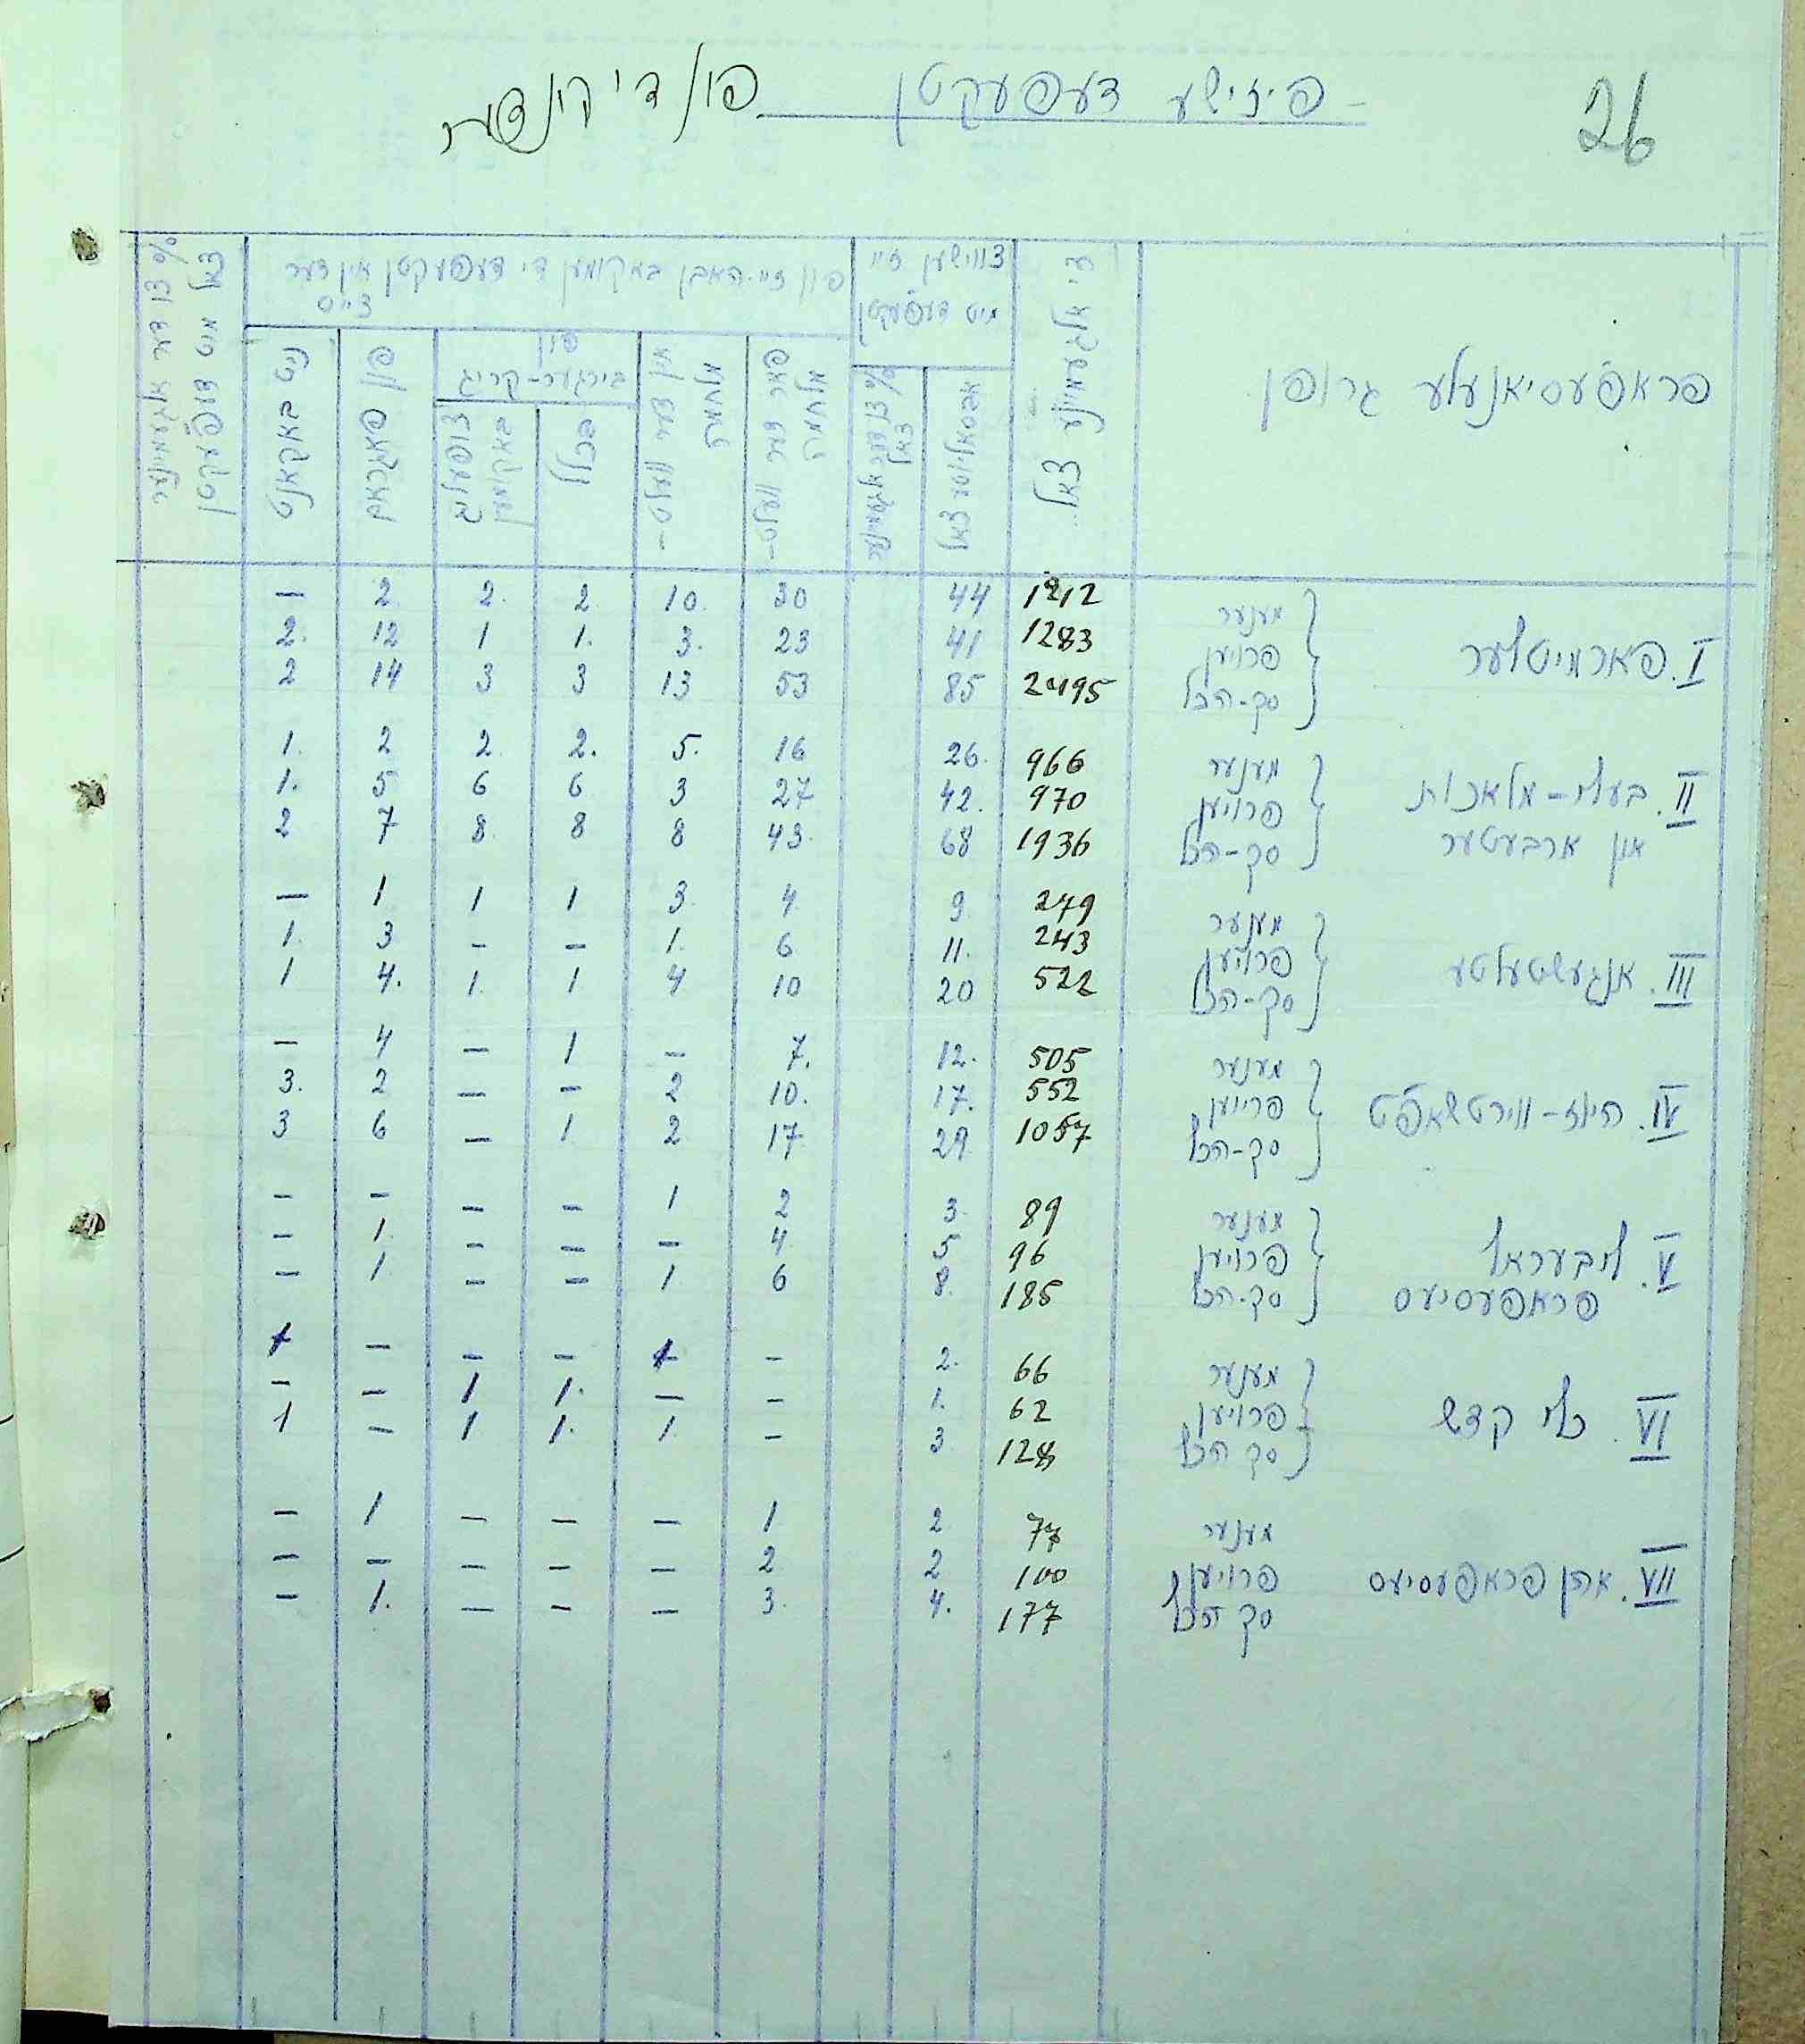 26
פיזישע דעפעקטן פון די קינדער
פראפעסיאנעלע גרופן
די אלגעמיינע צאל
צווישן זיי
מיט דעפעקטן
אבסאליוטע צאל
פון זיי האבן באקומען די דעפעקטן אין דער
צייט
פון
בירגער-קריג
I. פארמיטלער
מענער 1212 44 30 10. 2 2. 2 —
פרויען 1283 41 23 3. 1. 1 12 2.
סך-הכל 2495 85 53 13 3 3 14 2
II. בעלי-מלאכות
און ארבעטער
מענער 966 26. 16 5. 2. 2 2 1.
פרויען 970 42. 27 3 6 6 5 1.
סך-הכל 1936 68 43. 8 8 8. 7 2
III. אנגעשטעלטע
מענער 279 9. 4 3. 1 1 1 —
פרויען 243 11. 6 1. — — 3 1.
סך-הכל 522 20 10 4 1 1. 4. 1
IV. הויז-ווירטשאפט
מענער 505 12. 7. — 1 — 4 —
פרויען 552 17. 10. 2 — — 2 3.
סך-הכל 1057 29. 17 2 1 — 6 3
V. ליבעראל
פראפעסיעס
מענער 89 3. 2 1 — — — —
פרויען 96 5 4 — — — 1. —
סך-הכל 185 8. 6 1. — — 1 —
VI. כלי קדש
מענער 66 2. — 1 — — — 1
פרויען 62 1. — — 1. 1 — —
סך הכל 128 3 — 1. 1. 1 — 1
VII. אהן פראפעסיעס
מענער 77 2 1 — — — 1 —
פרויען 100 2 2 — — — — —
סך הכל 177 4. 3. — — — 1. —